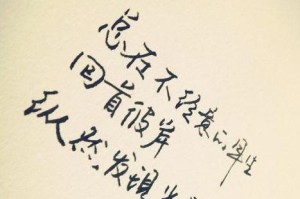 总在不经意的年生
回首彼岸
纵然发现光